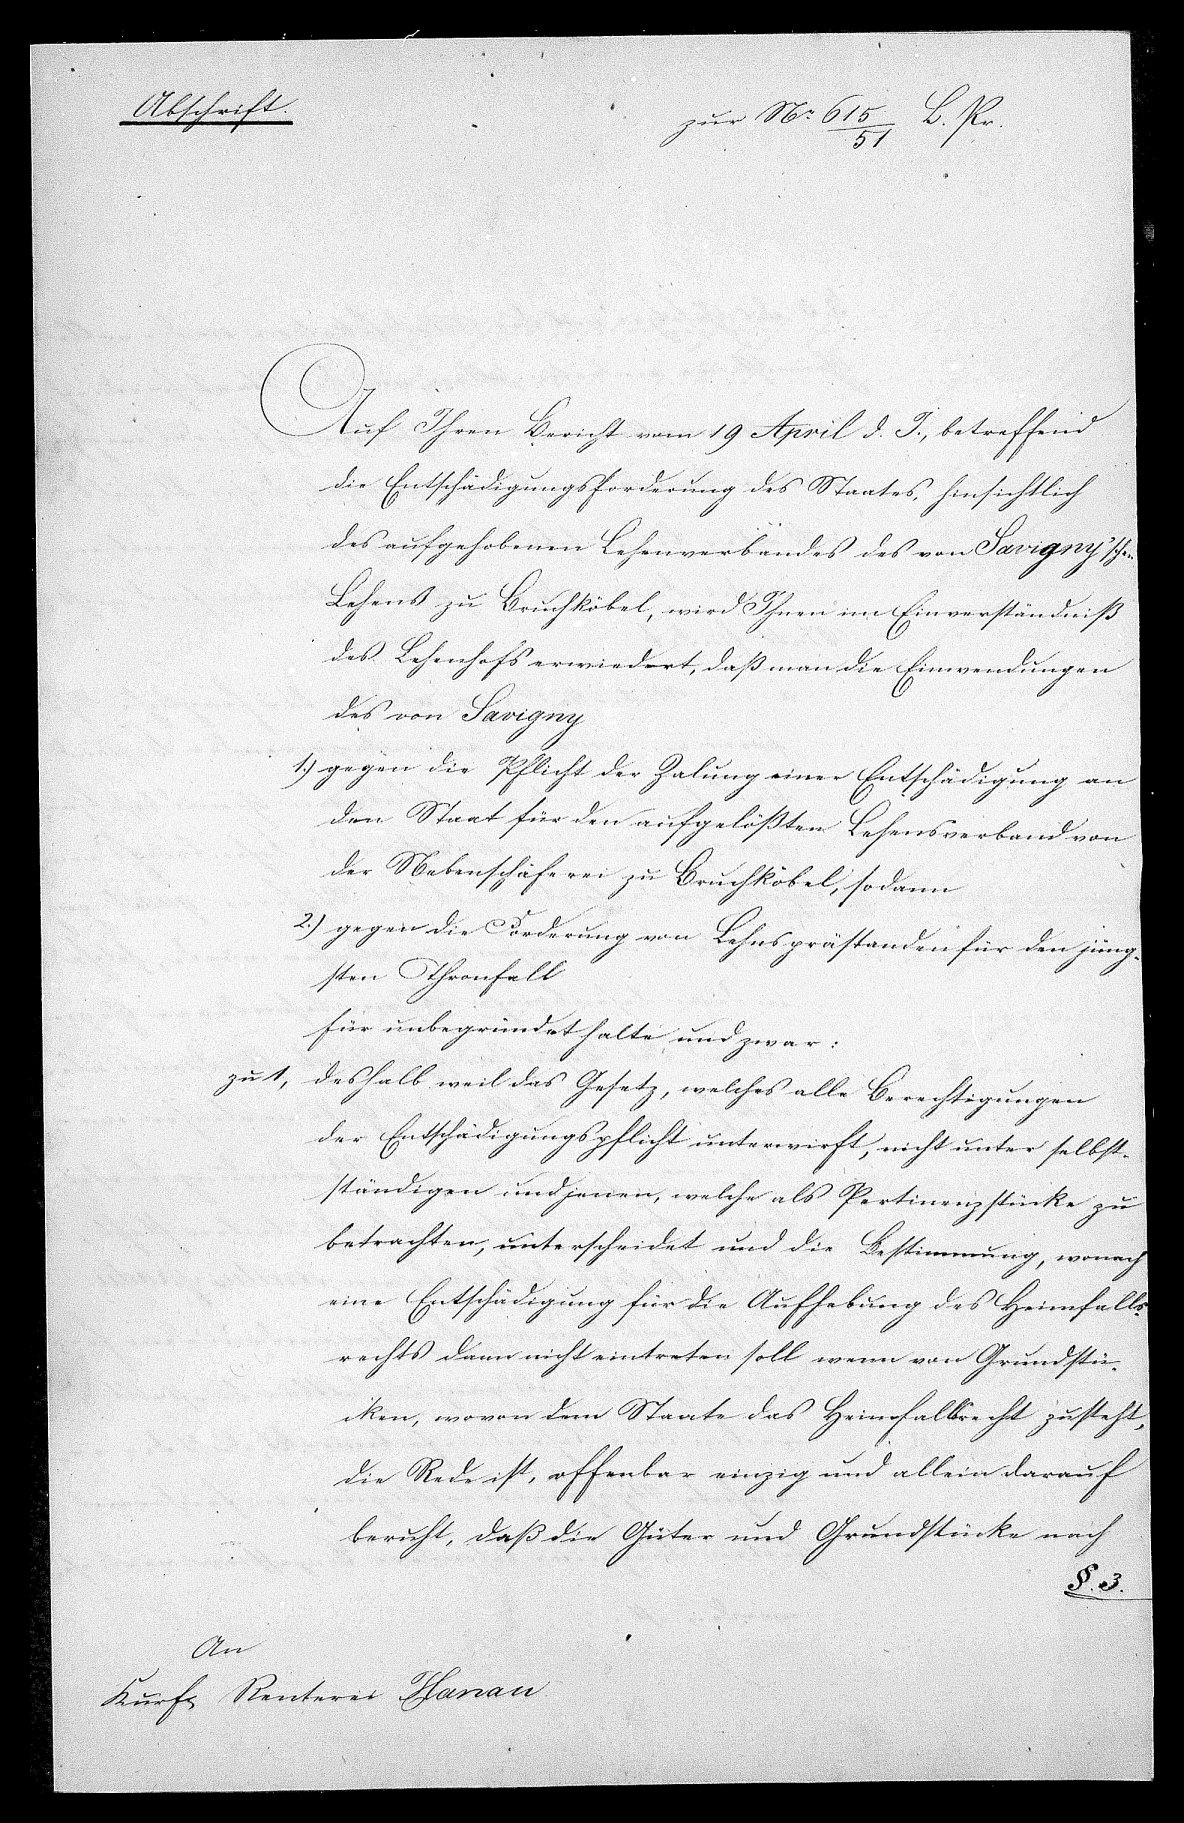 Abschrift.
zur No 615/51 B. Pr.
Auf Ihren Bericht vom 19 April d. J., betreffend
die Entschädigungsforderung des Staates, hinsichtlich
des aufgehobenen Lehenverbandes des von Savigny'schen
Lehens zu Bruchköbel, wird Ihnen im Einverständniß
des Lehenhofs erwiedert, daß man die Einwendungen
des von Savigny
1.) gegen die Pflicht der Zalung einer Entschädigung an
den Staat für den aufgelößten Lehensverband von
der Nebenschäferei zu Bruchköbel, sodann
2.) gegen die Forderung von Lehnsprästanden für den jüng-
sten Thronfall
für unbegründet halte und zwar:
zu 1, deshalb weil das Gesetz, welches alle Berechtigungen
der Entschädigungspflicht unterwirft, nicht unter selbst-
ständigen und jenen, welche als Pertinenzstücke zu
betrachten, unterscheidet und die Bestimmung, wonach
eine Entschädigung für die Aufhebung des Heimfalls-
rechts dann nicht eintreten soll wenn von Grundstü-
cken, wovon dem Staate das Heimfallsrecht zusteht,
die Rede ist, offenbar einzig und allein darauf
beruht, daß die Güter und Grundstücke nach
§. 3.
An
Kurf. Renterei Hanau